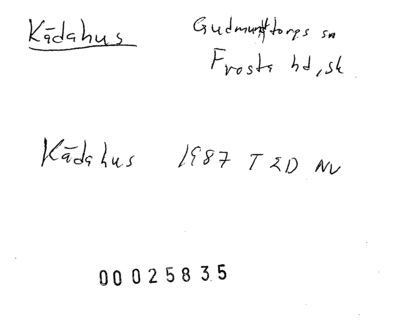 Kådahus Gudmuntorps sn
Frosta hd, sk
Kådahus 1987 T ED NV
00025835